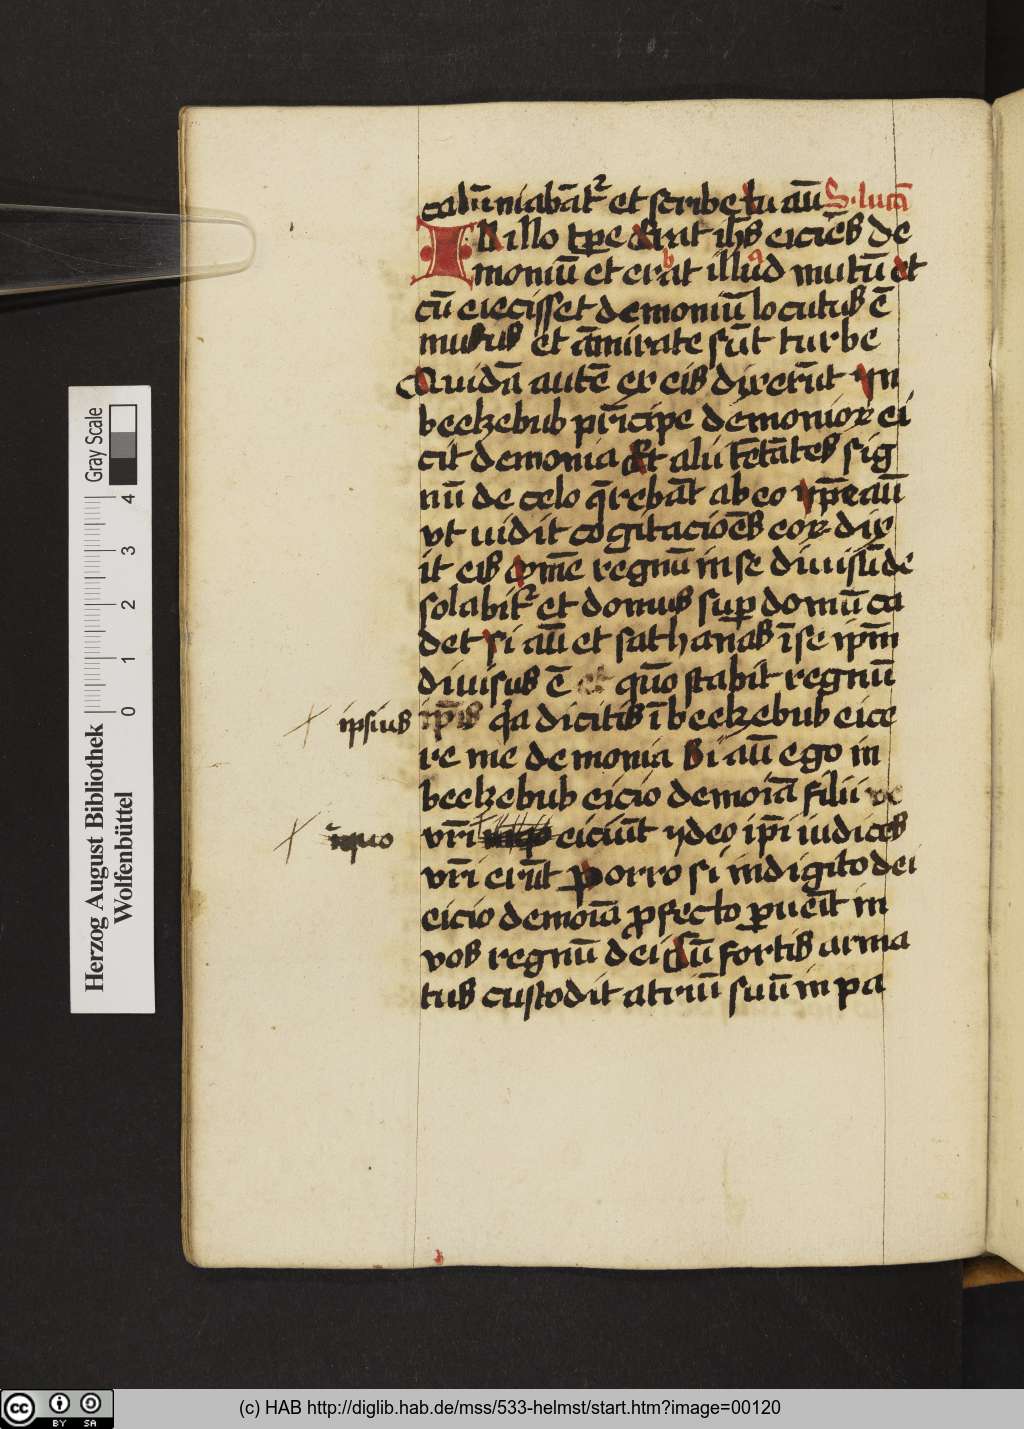 calūniabāt᷑ et scribe tu aūt S. lucā
IN illo tp̄e Erat ih̄s eiciēs de
moniū et erat illud mutū et
cū eiecisset demoniū locutus ē
mutus et āmirate sūt turbe
Quidā autē ex eis dixerūt In
beelzebub pͥncipe demonioꝝ ei
cit demonia Et alii tētātes sig
nū de celo q̄rebāt ab eo ip̄e aūt
vt uidit cogitacioēs eoꝝ dix
it eis om̄e regnū in se diuisū de
solabit᷑ et domus suꝑ domū ca
det si aūt et sathanas ī se ip̄m
diuisus ē et quō stabit regnū
ipsius ip̄is qͥa dicitis ī beelzebub eice
re me demonia Si aūt ego in
beelzebub eicio demoīa filii ve
in quo vr̄i eiciūt ydeo ip̄i iudices
vr̄i erūt Porro si in digito dei
eicio demoīa ꝓfecto ꝑueīt in
vos regnū dei Cū fortis arma
tus custodit atriū suū in pa
Herzog August Bibliothek
Wolfenbüttel
0 1 2 3 4
Gray Scale
cc BY SA
(c) HAB http://diglib.hab.de/mss/533-helmst/start.htm?image=00120